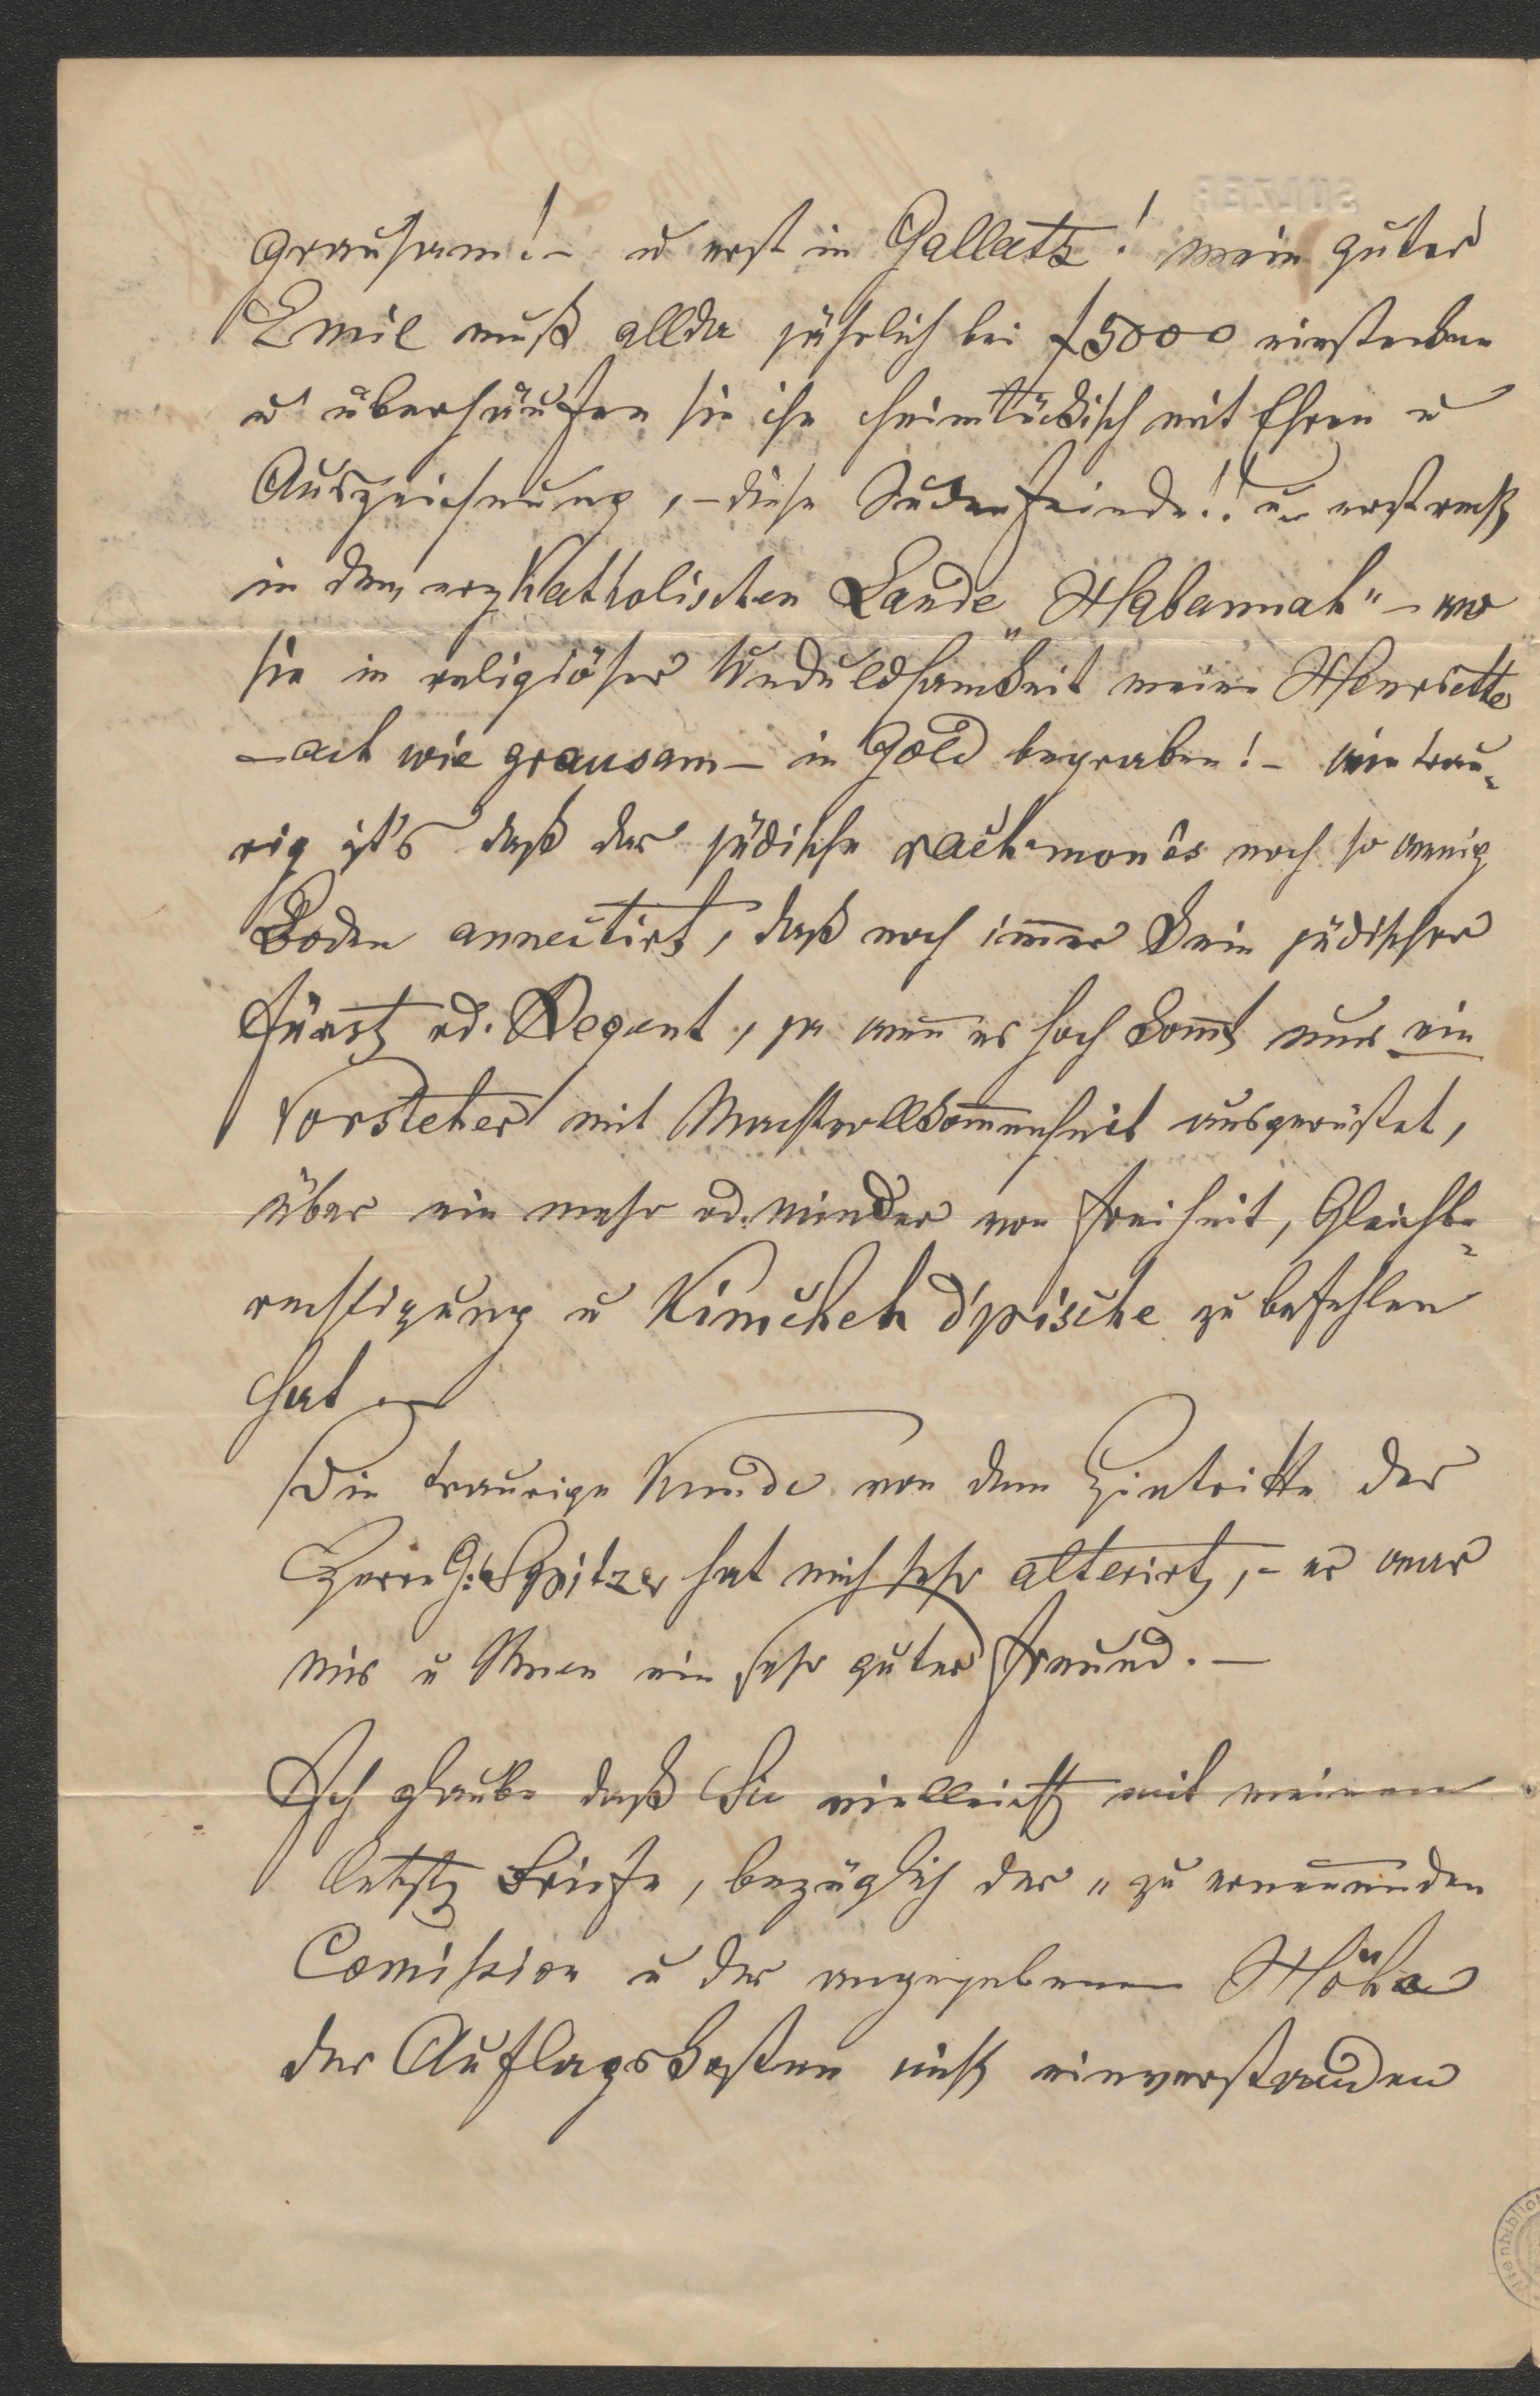 grausam! – u erst in Gallatz! mein guter
Emil muß allda jährlich bei f 5000 einstecken
u überhäufen sie ihn heimtückisch mit Ehren u
Auszeichnung, – diese Judenfeinde!! u erst recht
in dem erzkatholischen Lande „Habannah" – wo
sie in religiöser Unduldsamkeit meine Henriette
– ach wie grausam – in Gold begraben! – wie trau-
rig ist's daß der jüdische rachmonôs noch so wenig
Boden annectirt, daß noch immer kein jüdischer
Fürst od. Regent, ja wenn es hoch kommt nur ein
Vorsteher mit Machtvollkommenheit ausgerüstet,
über ein mehr od. minder von Freiheit, Gleichbe-
rechtigung u Kimcheh d'pische zu befehlen
hat –
Die traurige Kunde von dem Hintritte des
Herrn G: Spitzer hat mich sehr alterirt, – er war
mir u Ihnen ein sehr guter Freund. –
Ich glaube daß Sie vielleicht mit meinem
letzt Briefe, bezüglich der „zu ernennenden
Comission u der angegebenen Höhe
der Auflagskosten nicht einverstanden
SULZER